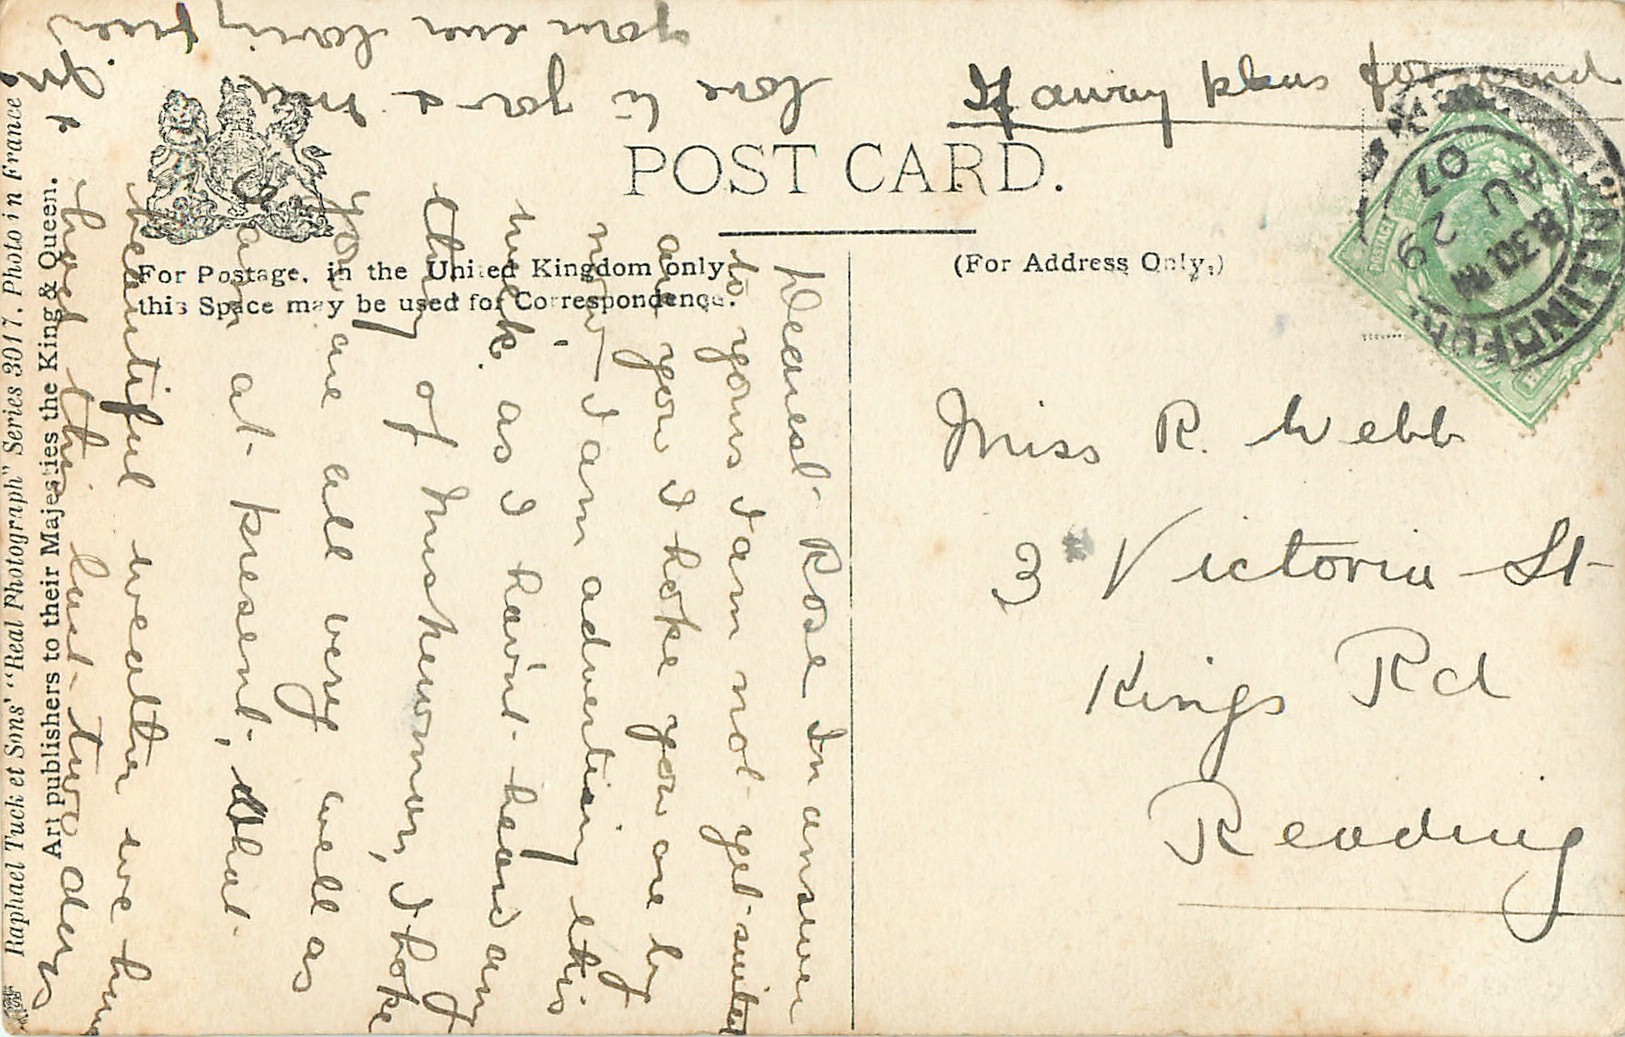 If away plus forward
POST CARD.
For Postage, in the United Kingdom only,
this Space may be used for Correspondence.
(For Address Only.)
WALLINGFORD
8.30 PM
AU 29
07
POSTAGE
Miss R. Webb
3 Victoria St
Kings Rd
Reading
Dearest Rose In answer
to yours I am not yet suited
are you I hope you are by
now I am advertising this
week as I hav'nt heard any
thing of Mrs
I hope
you are all very well as
I am at present, What
beautiful weather we have
had this last two days
love to you &
your ever loving
Raphael Tuck et Sons' "Real Photograph" Series 3017. Photo in France
Art publishers to their Majesties the King & Queen.